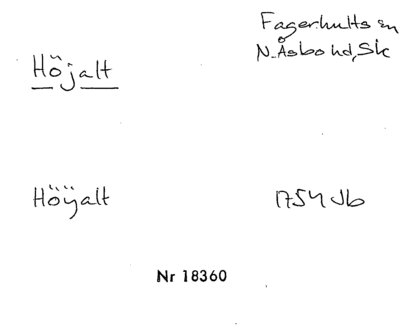 Fagerhults sn
Höjalt
N. Åsbo hd, Sk
Höÿalt
1754 Jb
Nr 18360